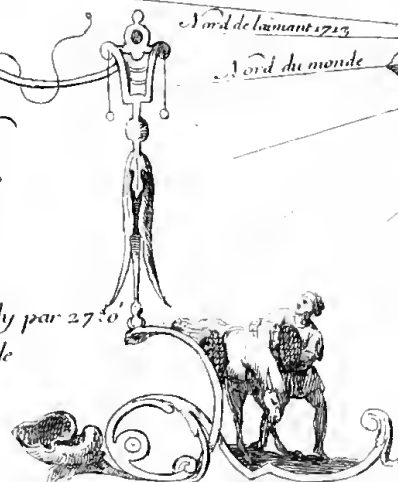 Nord de laimant 1713
Nord du monde
par 27.° 0'